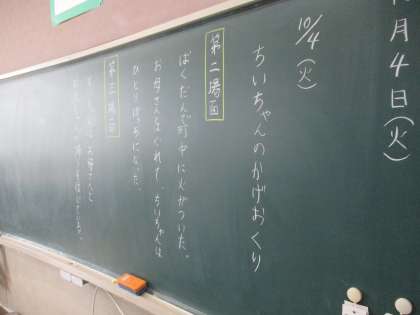 月4日(火)
10/4(火)
ちいちゃんのかげおくり
第二場面
ばくだんで町中に火がついた。
お母さんとはぐれて、ちいちゃんは
ひとりぼっちになった。
第三場面